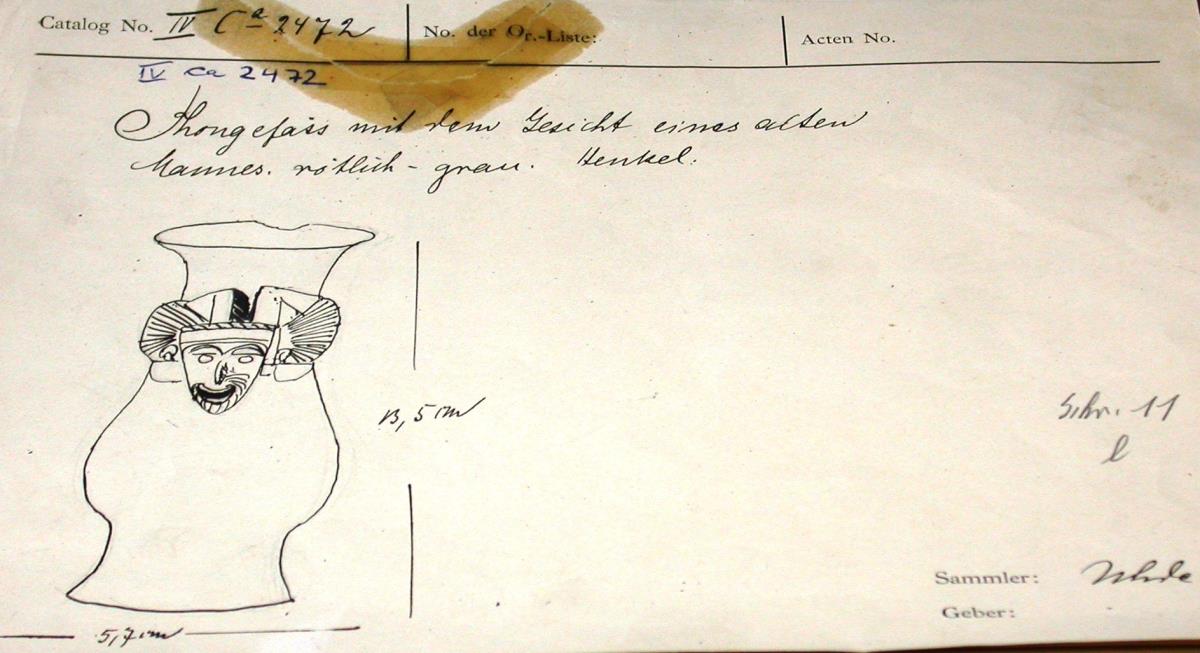 Catalog No. IV Ca 2472 No. der Or.-Liste: Acten No.
IV Ca 2472
Thongefäss mit dem Gesicht eines alten
Mannes. rötlich-grau. Henkel.
13,5 cm
Schr. 11
l
Sammler: Uhde
Geber:
5,7 cm